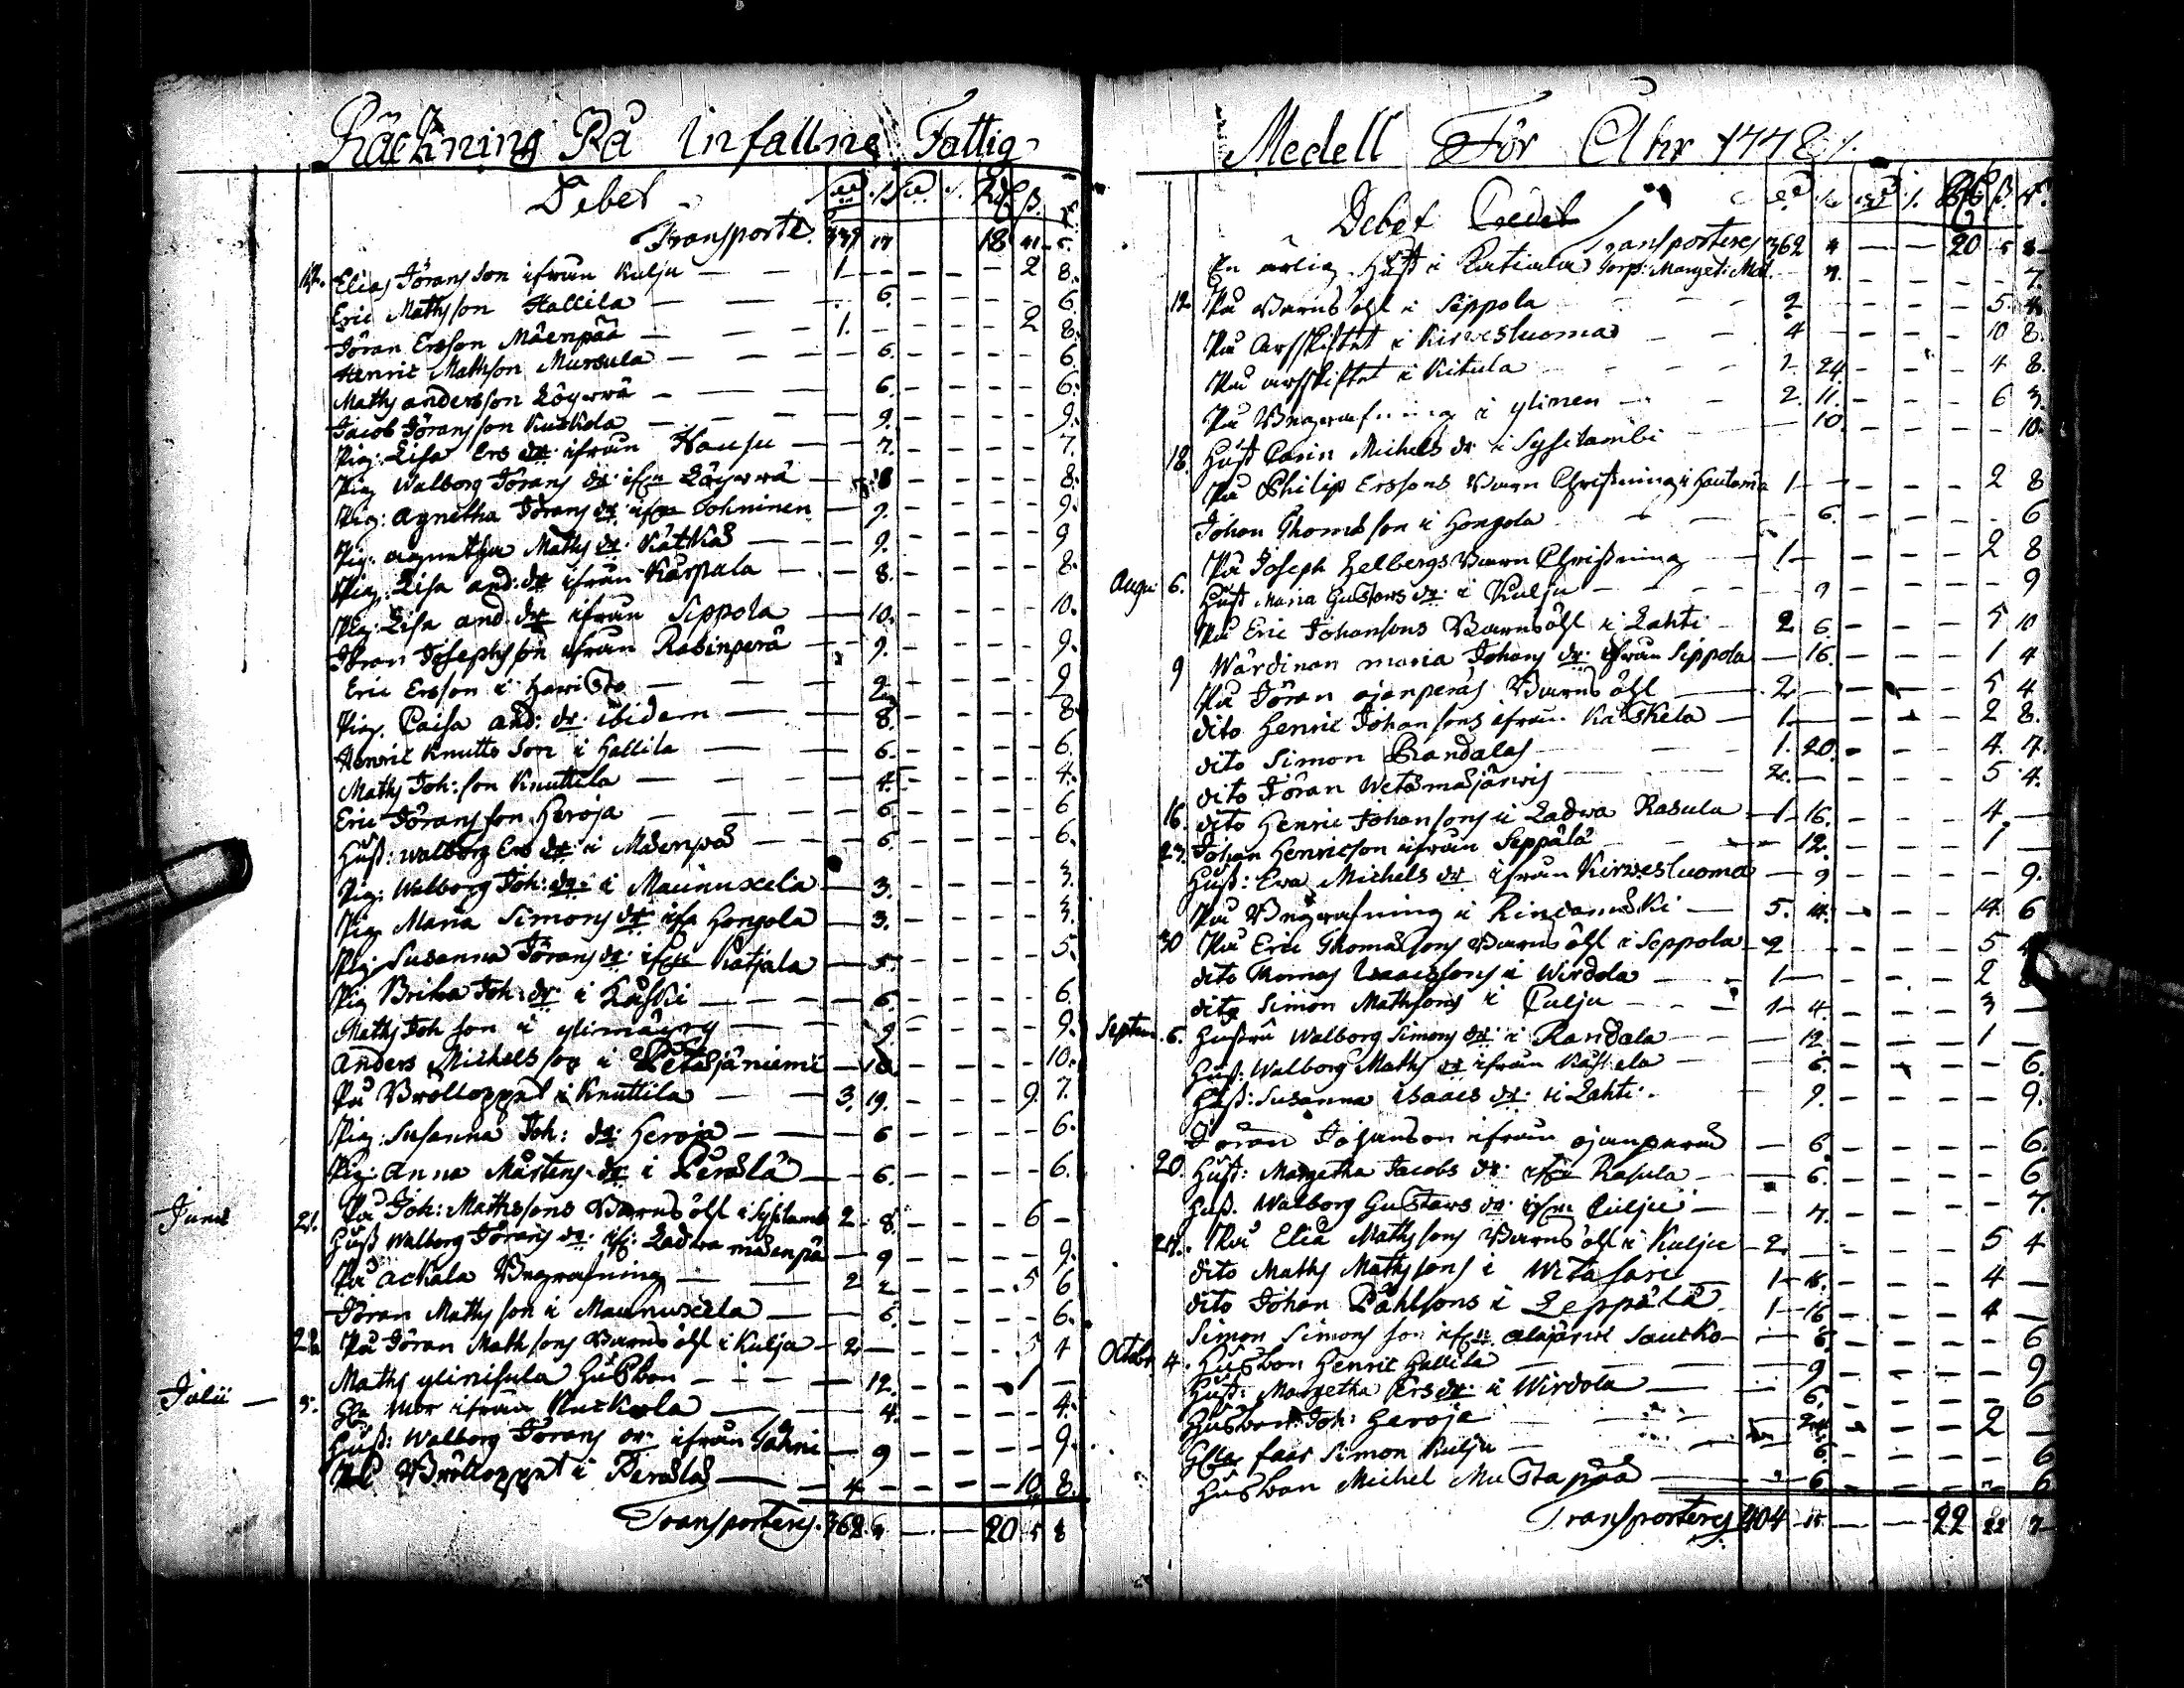 Räckning På Infallne Fattig-
Debet
Transporte. 339 17 18 41 5
12. Elias Jörans son ifrån Kulju — 1 — — — — 2 8.
Eric Mathsson Hallila — 6. — — — — 6.
Jöran Ersson Mäenpää — 1. — — — — 2 8.
Henric Mathson Mursula — 6. — — — — 6.
Maths andersson Löyrrä — 6. — — — — 6.
Jacob Jöransson Kuckola — 9. — — — — 9.
Pig: Lisa Ers dr: ifrån Hausu — 7. — — — — 7.
Pig Walborg Jörans dr: ifrn Löyrrä — 8 — — — — 8.
Pig: Agnetha Jörans dr: ifrn Johninen — 9. — — — — 9.
Pig: agnetha Maths dr: Kätkä — 9. — — — — 9
Pig: Lisa and: dr ifrån Karpala — 8. — — — — 8.
Pig: Lisa and: dr ifrån Seppola — 10. — — — — 10.
Jöran Josephsson ifrån Rasinperä — 9. — — — — 9.
Eric Ersson i Haristo — 9 — — — — 9
Pig. Caisa and: dr. ibidem — 8. — — — — 8
Henric Knuttsson i Hallila — 6. — — — — 6.
Maths Joh: son Knuttila — 4. — — — — 4.
Eric Jörans son Heroja — 6 — — — — 6
Hust: Walborg Ers dr: i Mäenpää — 6. — — — — 6.
Pig: Walborg Joh: dr: i Maunuxela — 3. — — — — 3.
Pig Maria Simons dr ifrn Hongola — 3. — — — — 3.
Pig: Susanna Jörans dr: ifrn Katjala — 5. — — — — 5.
Pig Brita Joh: dr: i Kaski — 6. — — — — 6.
Maths Joh son i ylimäyry — 9. — — — — 9.
Anders Michelsson i Petäjäniemi — 10. — — — — 10.
På Brölloppet i Knuttila — 3. 19. — — — 9. 7.
Pig: Susanna Joh: dr: Heroja — 6 — — — — 6.
Pig: Anna Mårtens dr i Perälä — 6. — — — — 6.
Junii 21. På Joh: Mathssons Barns öhl i Sysilamb 2. 8. — — — 6 —
Hust Walborg Jörans dr: ifr: Ladwa mäenpä — 9 — — — — 9.
På Ackala Begrafning — 2 2 — — — 5 6
Jöran Maths son i Maunuxela — 6. — — — — 6.
22 På Jöran Mathsons Barns öhl i Kulju — 2 — — — — 5 4
Maths ylinisula Husbon — 12. — — — 1 —
Julii — 5. Gl: Mor ifrån Kuckola — 4. — — — — 4.
Hust: Walborg Jörans dr: ifrån Jahni — 9 — — — — 9.
På Brölloppet i Perälä — 4 — — — — 10 8.
Transporteres. 362. 4 — — 20 5 8
Medell För Åhr 1778.
Debet Credet
Transporteres 362 4 — — 20 5 8
En ärlig Hust i Ratiala Torp: Marget: Mat. — 7. — — — — 7.
12. På Barns öhl i Seppola — 2 — — — — 5. 4.
På Arfskiftet i Kirvesluoma — 4 — — — — 10 8.
På arfskiftet i Kitula — 1 24. — — — 4 8.
På Begrafning i ylinen — 2. 11. — — — 6 3.
18. Hust Carin Michels dr i Sysilambi — 10. — — — — 10.
På Philip Erssons Barn Christning i Hautamä 1 — — — — 2 8
Johan Thomasson i Hongola — 6. — — — — 6
På Joseph Helbergs Barn Christning — 1 — — — — 2 8
Augu: 6. Hust Maria Gustavs dr: i Kulju — 9 — — — — 9
På Eric Johansons Barns öhl i Lahti — 2 6. — — — 5 10
9 Wärdinan maria Johans dr: ifrån Seppola — 16. — — — 1 4
På Jöran ojanperäs Barns öhl — 2. — — — — 5 4
dito Henric Johansons ifrån Katskela — 1. — — — — 2 8.
dito Simon Randalas — 1. 20. — — — 4. 4.
dito Jöran Wetämäjärvis — 2. — — — — 5 4.
16. dito Henric Johansons i Ladwa Rasula — 1 — 16. — — — 4. —
23. Johan Henricson ifrån Seppälä — 12. — — — 1 —
Hust: Ewa Michels dr ifrån Kirwesluoma — 9 — — — — 9.
På Begrafning i Rindamäki — 5. 14. — — — 14. 6
30 På Eric Thomassons Barns öhl i Seppola — 2 — — — — 5 4
dito Thomas Isaacssons i Wirdola — 1 — — — — 2 8
dito Simon Mathsons i Pulju — 1 — 4. — — — 3 —
Septem. 6. Hustru Walborg Simons dr: i Randala — 12. — — — 1 —
Hust: Walborg Maths dr ifrån Kaskela — 6. — — — — 6.
Hust: Susanna Isaacs dr: i Lahti — 9. — — — — 9.
Jöran Johanson ifrån ojanperä — 6 — — — — 6.
20. Hust: Margetha Jacobs dr: ifrn Rasula — 6. — — — — 6
Hust. Walborg Gustavs dr: ifrn Culju — 7. — — — — 7.
27. På Elia Mathssons Barns öhl i Kulju — 2. — — — — 5 4
dito Maths Mathssons i Witasari — 1 — 16. — — — 4 —
dito Johan Påhlsons i Leppälä — 1 — 16 — — — 4 —
Simon Simons son ifrn alajärvi Saucko — 6 — — — — 6
Octobr. 4. Husbon Henric Hallila — 9 — — — — 9
Hust: Margetha Ers dr: i Wirdola — 6. — — — — 6
Husbon: Joh: Heroja — 24. — — — 2 —
Gl: faar Simon Kulju — 6. — — — — 6
Husbon Michel Mustapää — 6 — — — — 6
Transporteres 404 15. — — 22 22 7